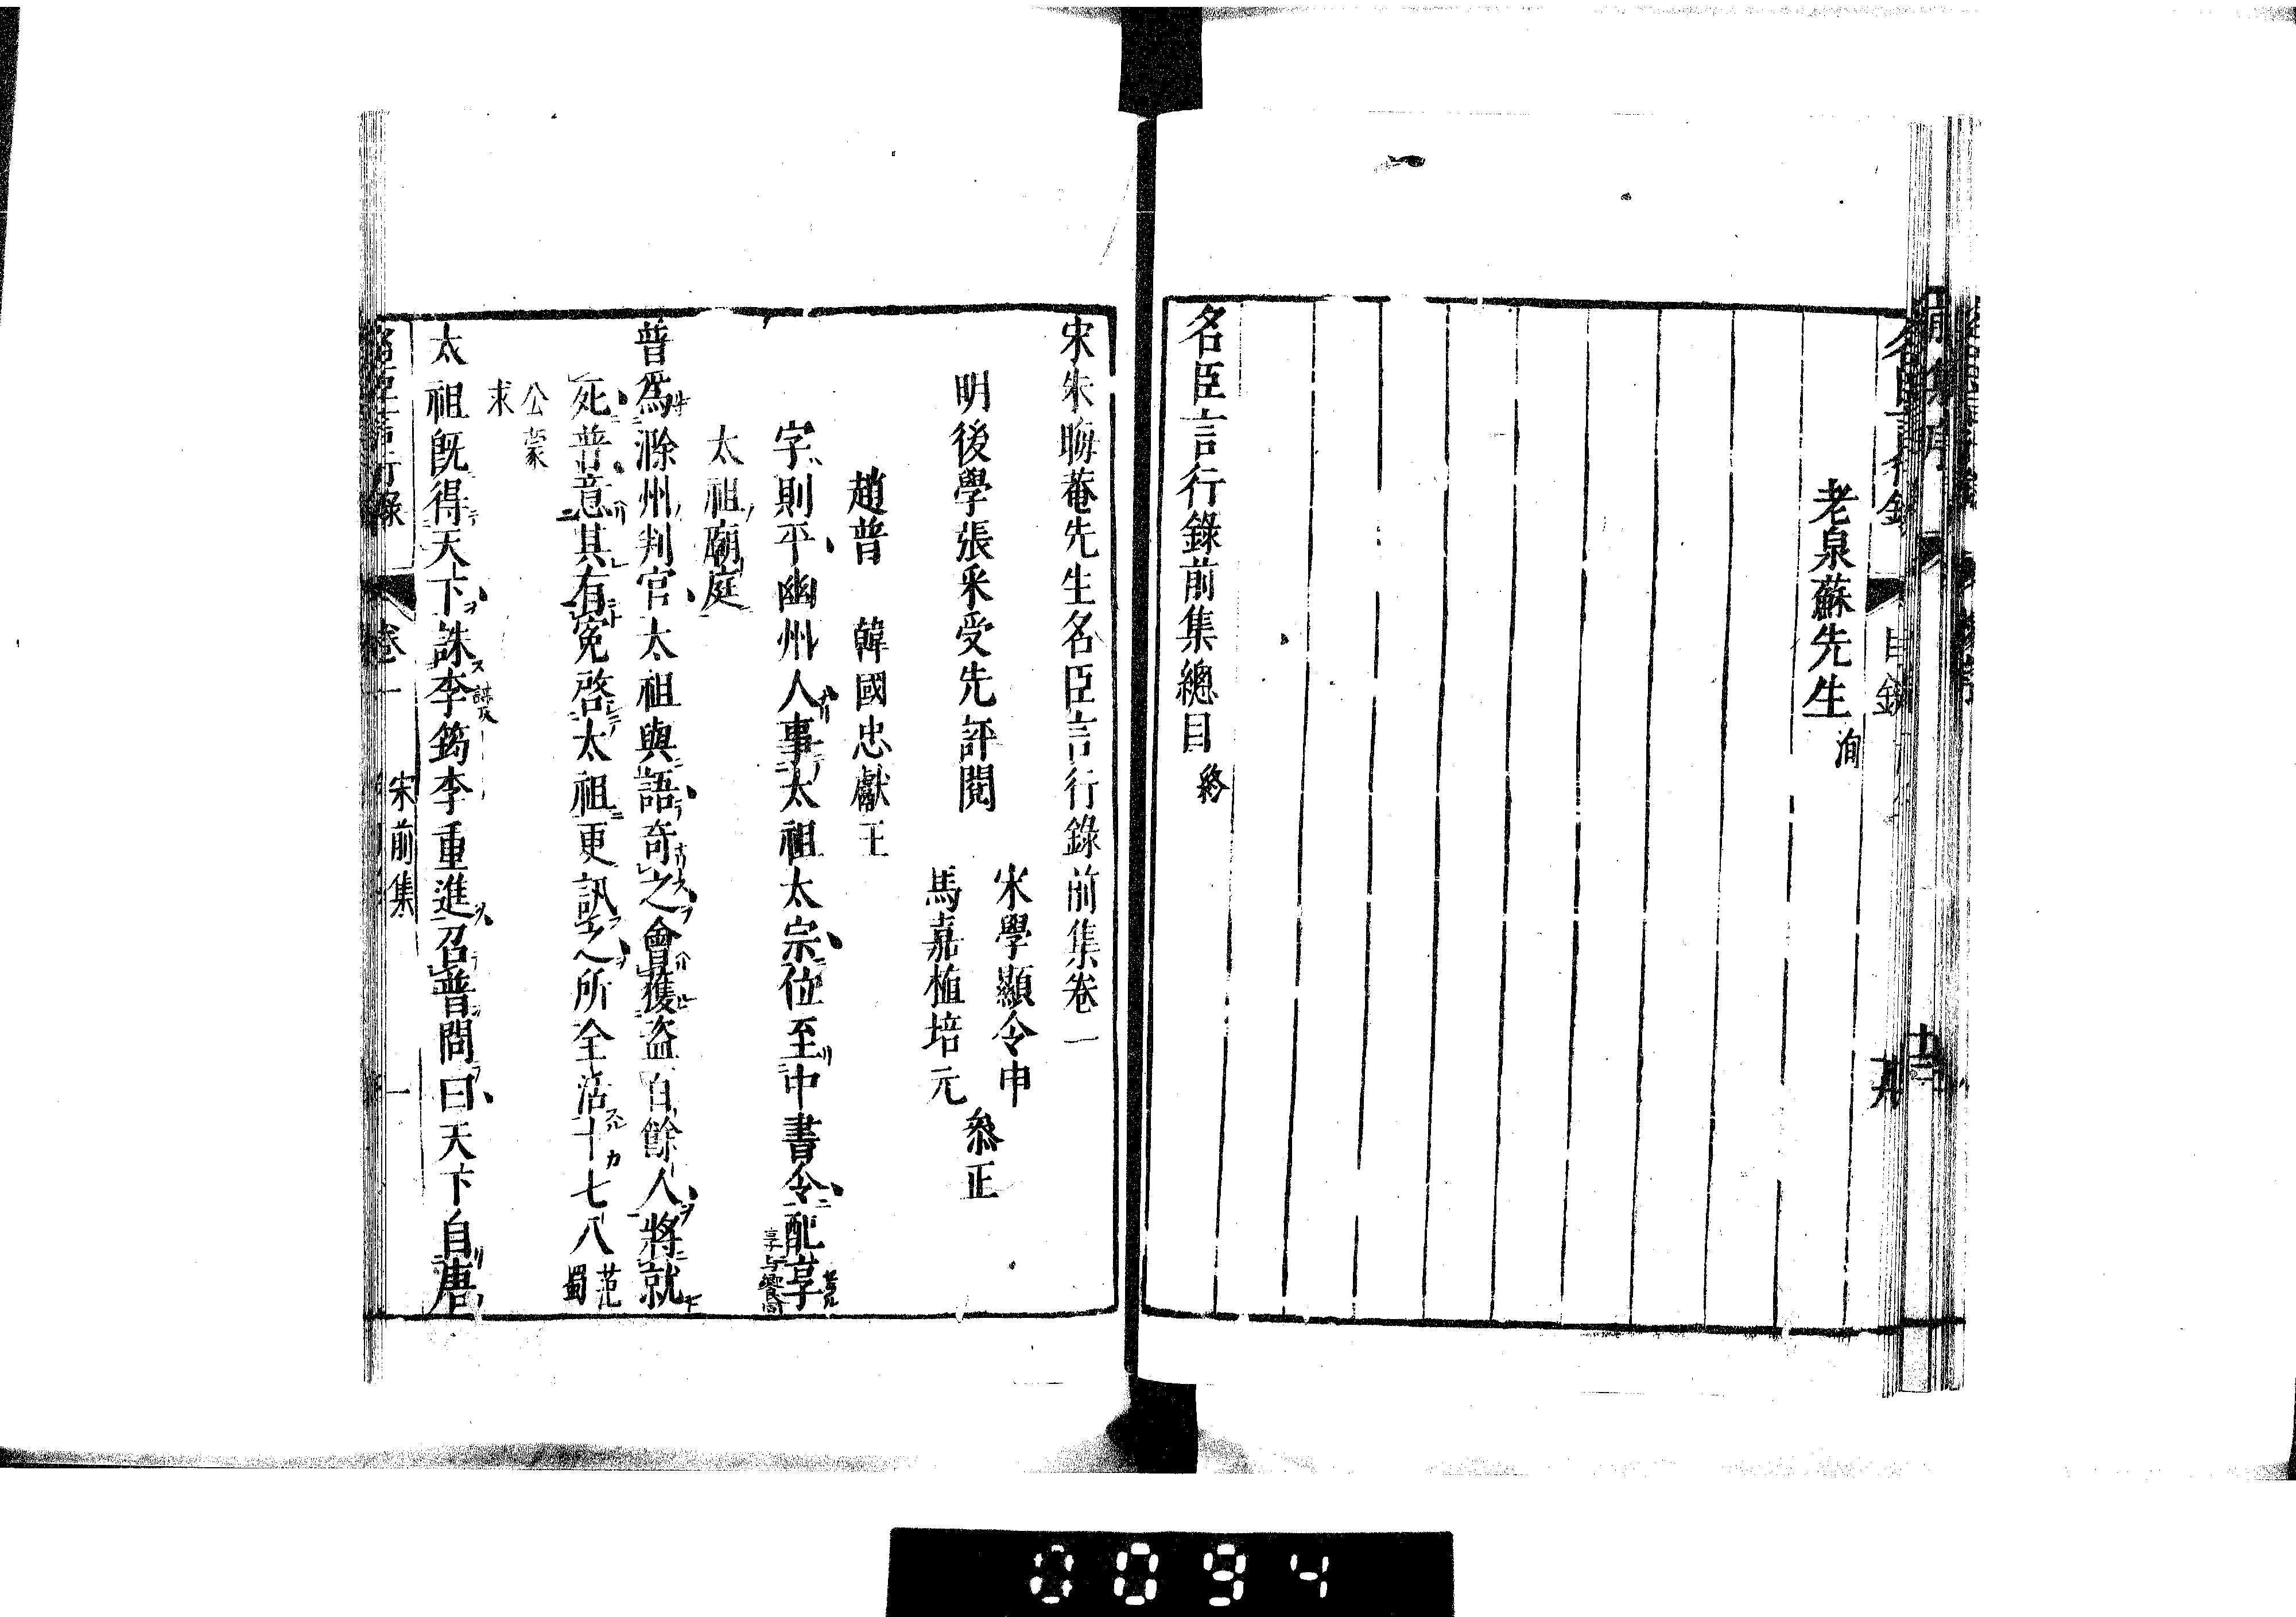 老泉蘇先生 洵
名臣言行錄前集總目 終
宋朱晦菴先生名臣言行錄前集卷一
明後學張采受先評閱
宋學顯令申
馬嘉植培元
叅正
趙普 韓國忠獻王
字則平幽州人事太祖太宗位至中書令配享
太祖廟庭
普爲滁州判官太祖與語奇之會獲盜百餘人將就
死普意其有冤啓太祖更訊之所全活十七八 范蜀
公蒙求
太祖旣得天下誅李筠李重進召普問曰天下自唐
名臣言行錄 卷一 宋前集 一
0094